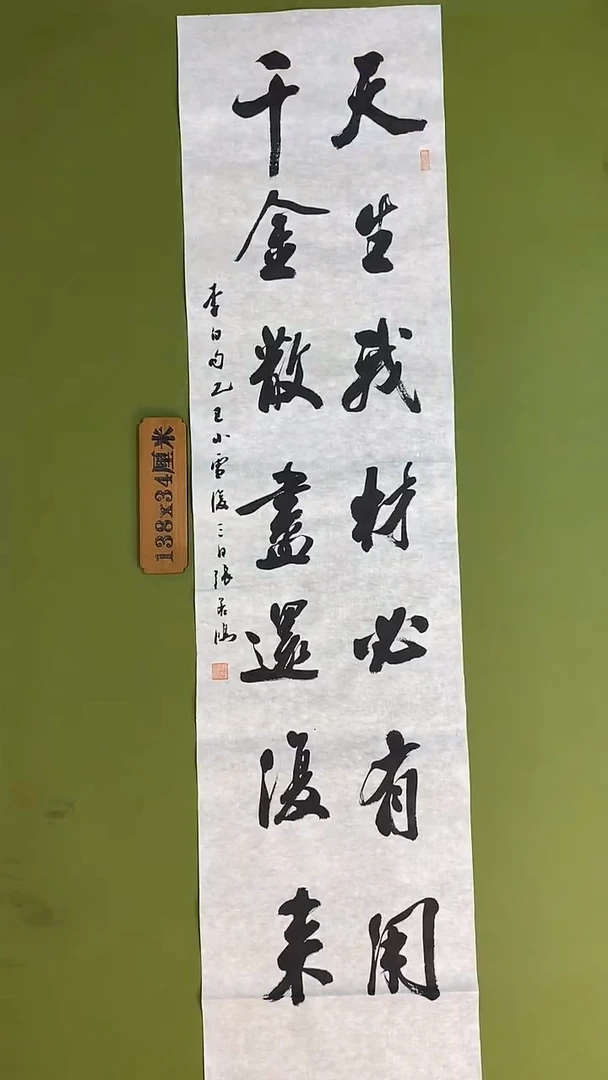 天生我材必有用
千金散盡還復来
李白句乙巳小雪後三日張若鴻
138x34厘米